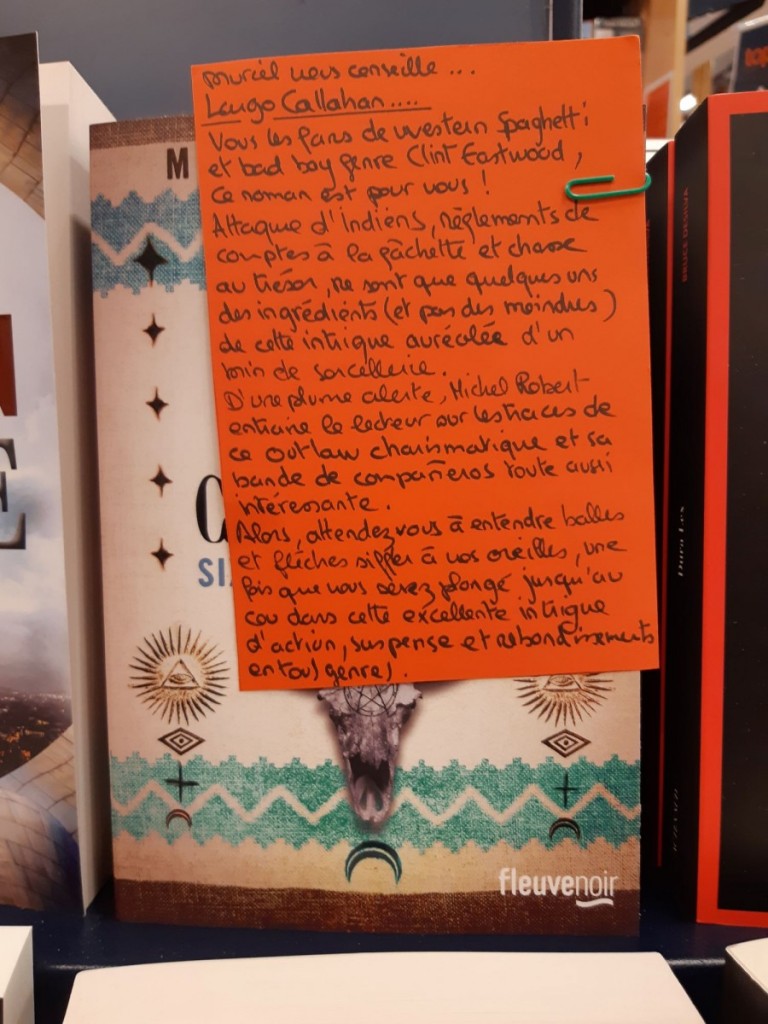 Muriel vous conseille ...
Lango Callahan....
Vous les fans de western Spaghetti
et bad boy genre Clint Eastwood,
ce roman est pour vous !
Attaque d'indiens, règlements de
comptes à la gâchette et chasse
au trésor, ne sont que quelques uns
des ingrédients (et pas des moindres)
de cette intrigue auréolée d'un
brin de sorcellerie.
D'une plume alerte, Michel Robert
entraine le lecteur sur les traces de
ce outlaw charismatique et sa
bande de compañeros toute aussi
intéressante.
Alors, attendez vous à entendre balles
et flèches siffler à vos oreilles, une
fois que vous serez plongé jusqu'au
cou dans cette excellente intrigue
d'action, suspense et rebondissements
en tous genres.
M
SI
fleuvenoir
BRUCE DESILVA
Dura Lex